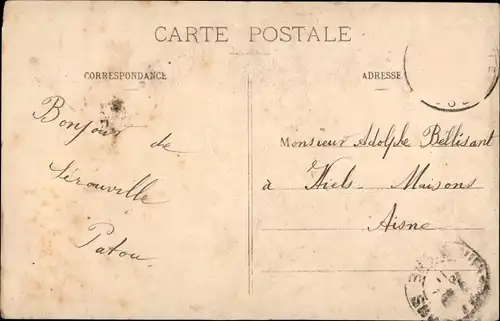 CARTE POSTALE
CORRESPONDANCE
ADRESSE
Bonjour de
Sérouville
Patou
Monsieur Adolphe Bellisant
à Viels Maisons
Aisne